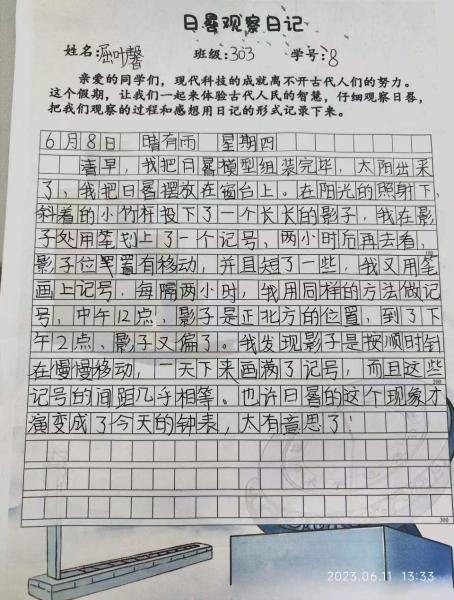 日晷观察日记
姓名:屈叶馨 班级:303 学号:8
亲爱的同学们，现代科技的成就离不开古代人们的努力。
这个假期，让我们一起来体验古代人民的智慧，仔细观察日晷，
把我们观察的过程和感想用日记的形式记录下来。
6月8日 晴有雨 星期四
清早，我把日晷模型组装完毕，太阳出来
了，我把日晷摆放在窗台上。在阳光的照射下，
斜着的小竹杆投下了一个长长的影子，我在影
子处用笔划上了一个记号，两小时后再去看，
影子位置有移动，并且短了一些，我又用笔
画上记号，每隔两小时，我用同样的方法做记
号，中午12点、影子是正北方的位置，到了下
午2点、影子又偏了。我发现影子是按顺时针
在慢慢移动，一天下来画满了记号，而且这些
记号的间距几乎相等。也许日晷的这个现象才
演变成了今天的钟表，太有意思了！
100
200
300
2023.06.11 13:33